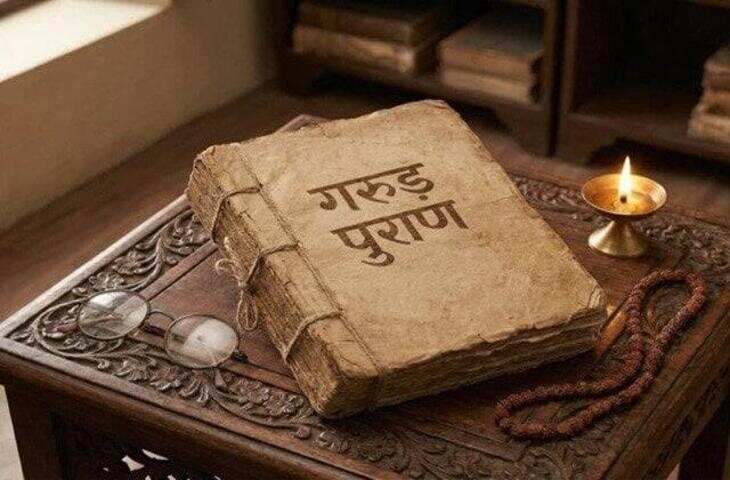 गरुड़
पुराण